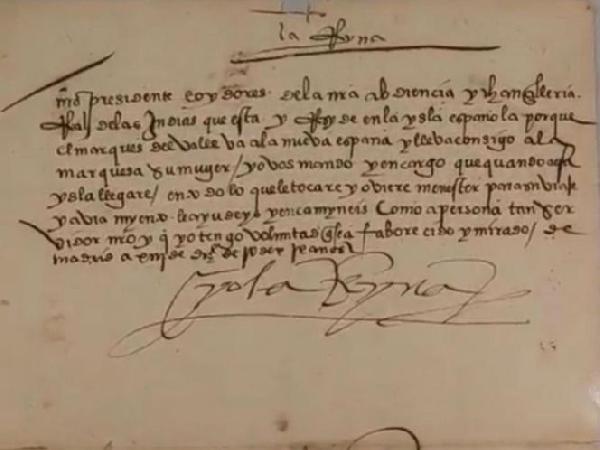 la Reyna
nro presidente e oydores de la nra abdiencia y chançilleria
Real de las Indias que esta y Resyde en la ysla española porque
el marques del valle va a la nueva españa y lleva consigo a la
marquesa su muger / yo vos mando y encargo que quando a esa
ysla llegare / en todo lo que le tocare y oviere menester para su viaje
y aviamyento le ayudeys y encamyneis como a persona tan ser
vidor mio y q yo tengo voluntad q sea faborecido y mirado / de
madrid a de de
yo la Reyna